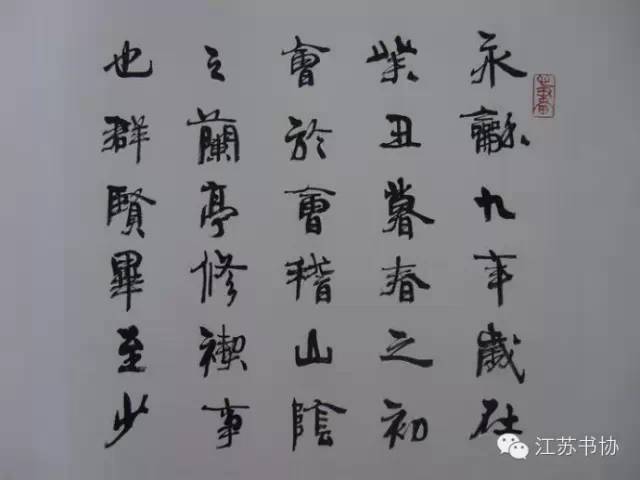 永龢九年歲在
癸丑暮春之初
會於會稽山陰
之蘭亭修禊事
也群賢畢至少
江苏书协